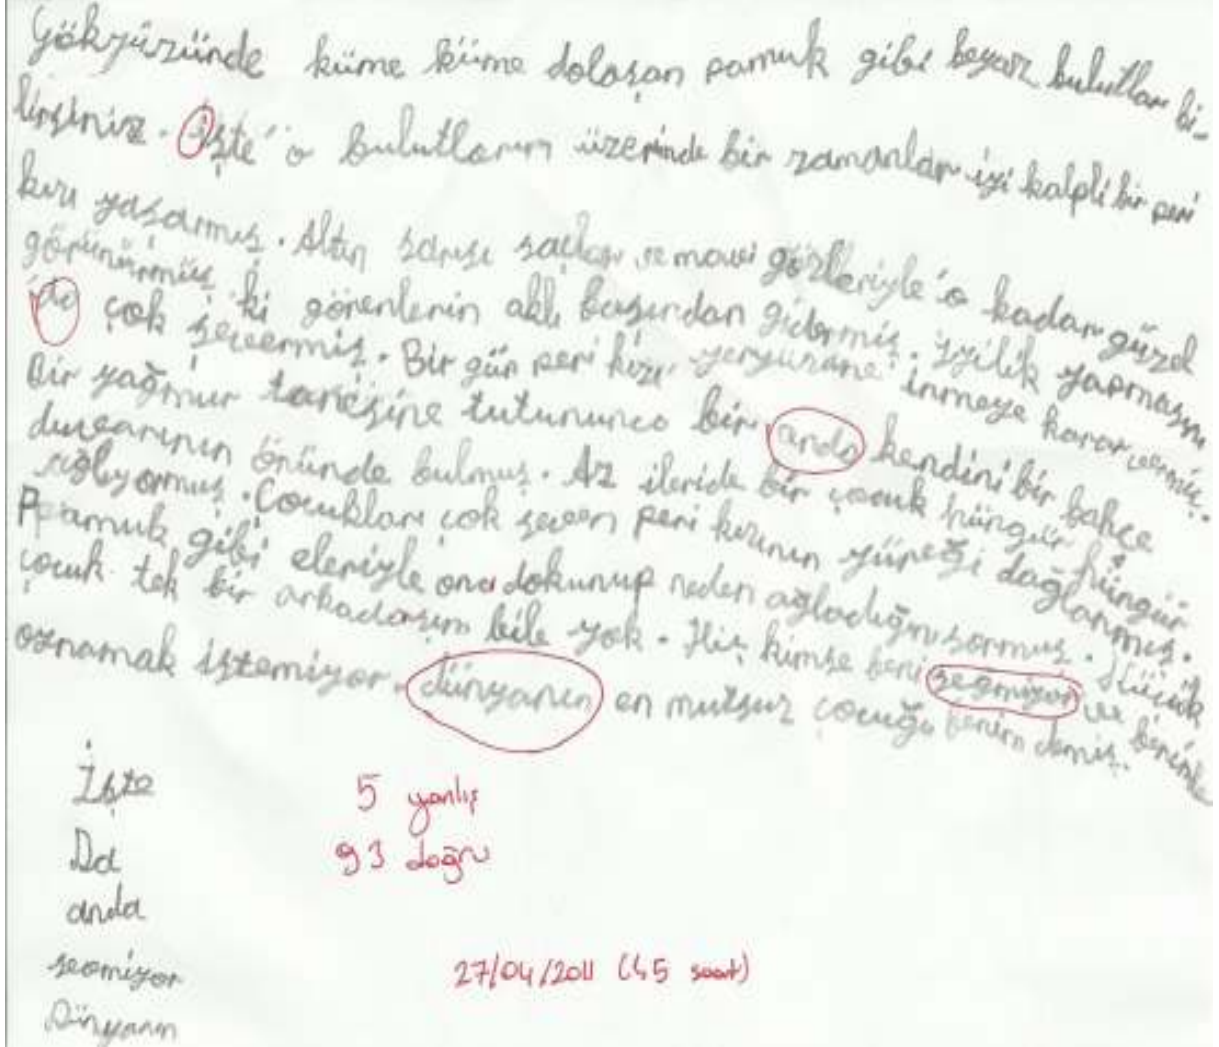 Gökyüzünde küme küme dolaşan pamuk gibi beyaz bulutları bi-
lirsiniz. işte o bulutların üzerinde bir zamanlar iyi kalpli bir peri
kızı yaşarmış. Altın sarısı saçları ve mavi gözleriyle o kadar güzel
görünürmüş ki görenlerin aklı başından gidermiş. iyilik yapmasını
da çok severmiş. Bir gün peri kızı yeryüzüne inmeye karar vermiş.
Bir yağmur tanesine tutununca bir anda kendini bir bahçe
duvarının önünde bulmuş. Az ileride bir çocuk hüngür hüngür
ağlıyormuş. Çocukları çok seven peri kızının yüreği dağlanmış.
Pamuk gibi eleriyle ona dokunup neden ağladığını sormuş. Küçük
çocuk tek bir arkadaşım bile yok. Hiç kimse beni segmiyor ve benimle
oynamak istemiyor. dünyanın en mutsuz çocuğu benim demiş.
İşte
5 yanlış
Da
93 doğru
anda
sevmiyor
27/04/2011 (45 saat)
Dünyanın